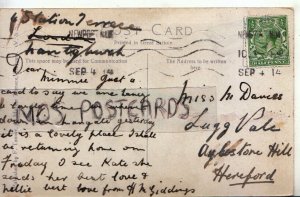 Station Terrace
Llantrybach
POST CARD
NEWPORT MON
SEP 4 14
Printed in Great Britain
This space may be used for Communication
The Address to be written here
Dear
Minnie just a
card to say we are
MGS POSTCARDS
yesterday
it is a lovely place I shall
be returning home on
Friday I see Kate she
sends her best love &
Nellie best love from H M Giddings
Miss M Davies
Lugg Vale
Aylestone Hill
Hereford
SEP 4 14
HALFPENNY